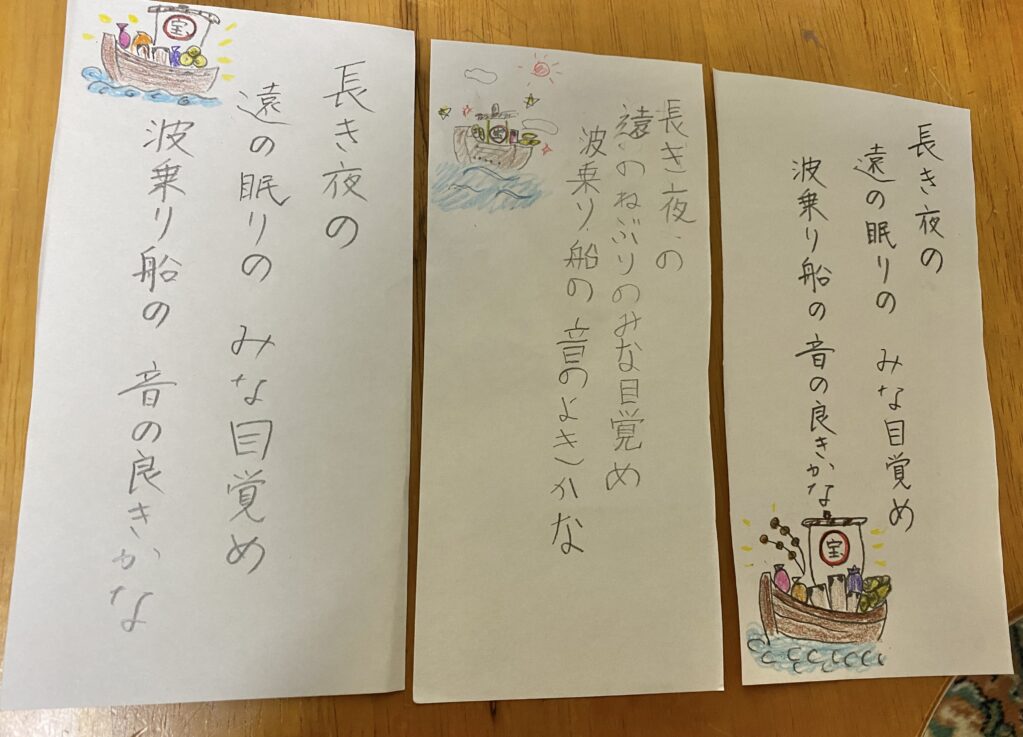 長き夜の
遠の眠りの みな目覚め
波乗り船の 音の良きかな
宝
長き夜の
遠のねぶりのみな目覚め
波乗り船の音のよきかな
宝
長き夜の
遠の眠りの みな目覚め
波乗り船の 音の良きかな
宝